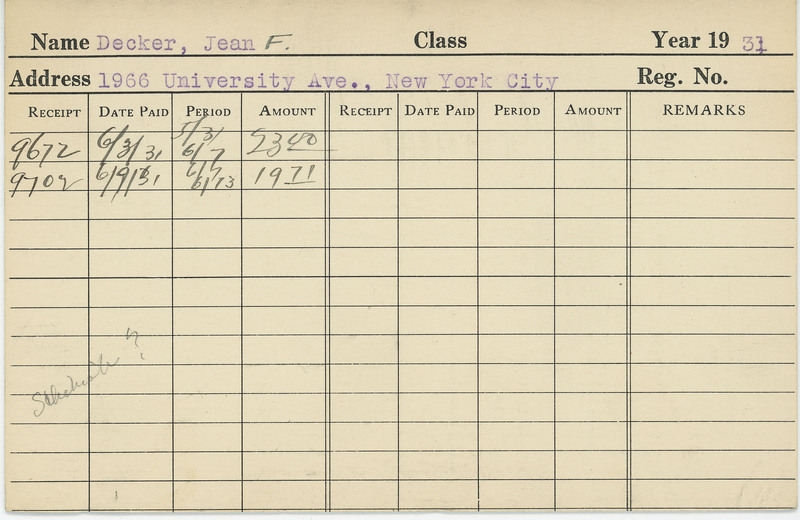 Name Decker, Jean F. Class Year 19 31
Address 1966 University Ave., New York City Reg. No.
RECEIPT DATE PAID PERIOD AMOUNT RECEIPT DATE PAID PERIOD AMOUNT REMARKS
9672 6/3/31 5/31 6/7 5340
9702 6/9/31 6/7 6/13 1971